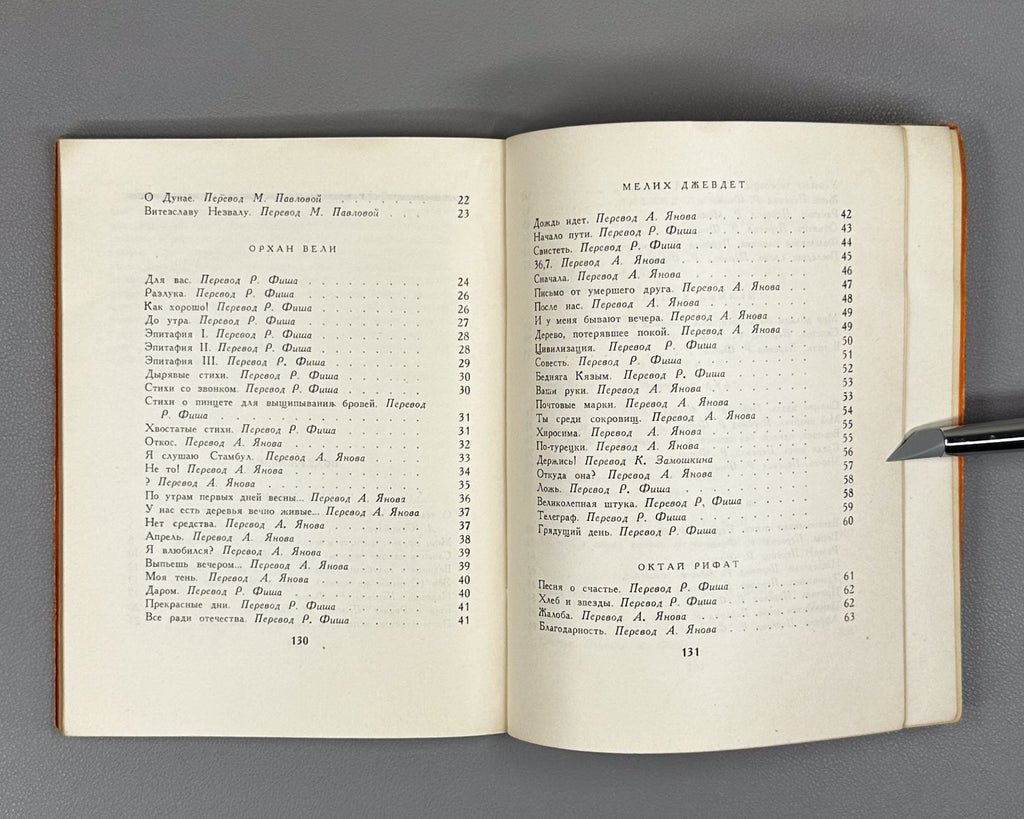 О Дунае. Перевод М. Павловой . . . . . . . 22
Витезславу Незвалу. Перевод М. Павловой . . . 23
ОРХАН ВЕЛИ
Для вас. Перевод Р. Фиша . . . . . . . . . 24
Разлука. Перевод Р. Фиша . . . . . . . . . 26
Как хорошо! Перевод Р. Фиша . . . . . . . . 26
До утра. Перевод Р. Фиша . . . . . . . . . 27
Эпитафия I. Перевод Р. Фиша . . . . . . . . 28
Эпитафия II. Перевод Р. Фиша . . . . . . . . 28
Эпитафия III. Перевод Р. Фиша . . . . . . . 29
Дырявые стихи. Перевод Р. Фиша . . . . . . . 30
Стихи со звонком. Перевод Р. Фиша . . . . . . 30
Стихи о пинцете для выщипывания бровей. Перевод
Р. Фиша . . . . . . . . . . . . . . . 31
Хвостатые стихи. Перевод Р. Фиша . . . . . . 31
Откос. Перевод А. Янова . . . . . . . . . . 32
Я слушаю Стамбул. Перевод А. Янова . . . . . 33
Не то! Перевод А. Янова . . . . . . . . . . 34
? Перевод А. Янова . . . . . . . . . . . . 35
По утрам первых дней весны... Перевод А. Янова . 36
У нас есть деревья вечно живые... Перевод А. Янова 37
Нет средства. Перевод А. Янова . . . . . . . 37
Апрель. Перевод А. Янова . . . . . . . . . 38
Я влюбился? Перевод А. Янова . . . . . . . 39
Выпьешь вечером... Перевод А. Янова . . . . . . 39
Моя тень. Перевод А. Янова . . . . . . . . 40
Даром. Перевод Р. Фиша . . . . . . . . . . 40
Прекрасные дни. Перевод Р. Фиша . . . . . . 41
Все ради отечества. Перевод Р. Фиша . . . . . 41
130
МЕЛИХ ДЖЕВДЕТ
Дождь идет. Перевод А. Янова . . . . . . . 42
Начало пути. Перевод Р. Фиша . . . . . . . 43
Свистеть. Перевод Р. Фиша . . . . . . . . 44
36,7. Перевод А. Янова . . . . . . . . . . 45
Сначала. Перевод А. Янова . . . . . . . . . 46
Письмо от умершего друга. Перевод А. Янова . . 47
После нас. Перевод А. Янова . . . . . . . . 48
И у меня бывают вечера. Перевод А. Янова . . . 49
Дерево, потерявшее покой. Перевод А. Янова . . 49
Цивилизация. Перевод Р. Фиша . . . . . . . 50
Совесть. Перевод Р. Фиша . . . . . . . . . 51
Бедняга Кязым. Перевод Р. Фиша . . . . . . 52
Ваши руки. Перевод А. Янова . . . . . . . . 53
Почтовые марки. Перевод А. Янова . . . . . . 53
Ты среди сокровищ. Перевод А. Янова . . . . . 54
Хиросима. Перевод А. Янова . . . . . . . . 55
По-турецки. Перевод А. Янова . . . . . . . . 55
Держись! Перевод К. Замошкина . . . . . . . 56
Откуда она? Перевод А. Янова . . . . . . . 57
Ложь. Перевод Р. Фиша . . . . . . . . . . 58
Великолепная штука. Перевод Р. Фиша . . . . . 58
Телеграф. Перевод Р. Фиша . . . . . . . . 59
Грядущий день. Перевод Р. Фиша . . . . . . 60
ОКТАЙ РИФАТ
Песня о счастье. Перевод Р. Фиша . . . . . . 61
Хлеб и звезды. Перевод Р. Фиша . . . . . . . 62
Жалоба. Перевод А. Янова . . . . . . . . . 62
Благодарность. Перевод А. Янова . . . . . . . 63
131